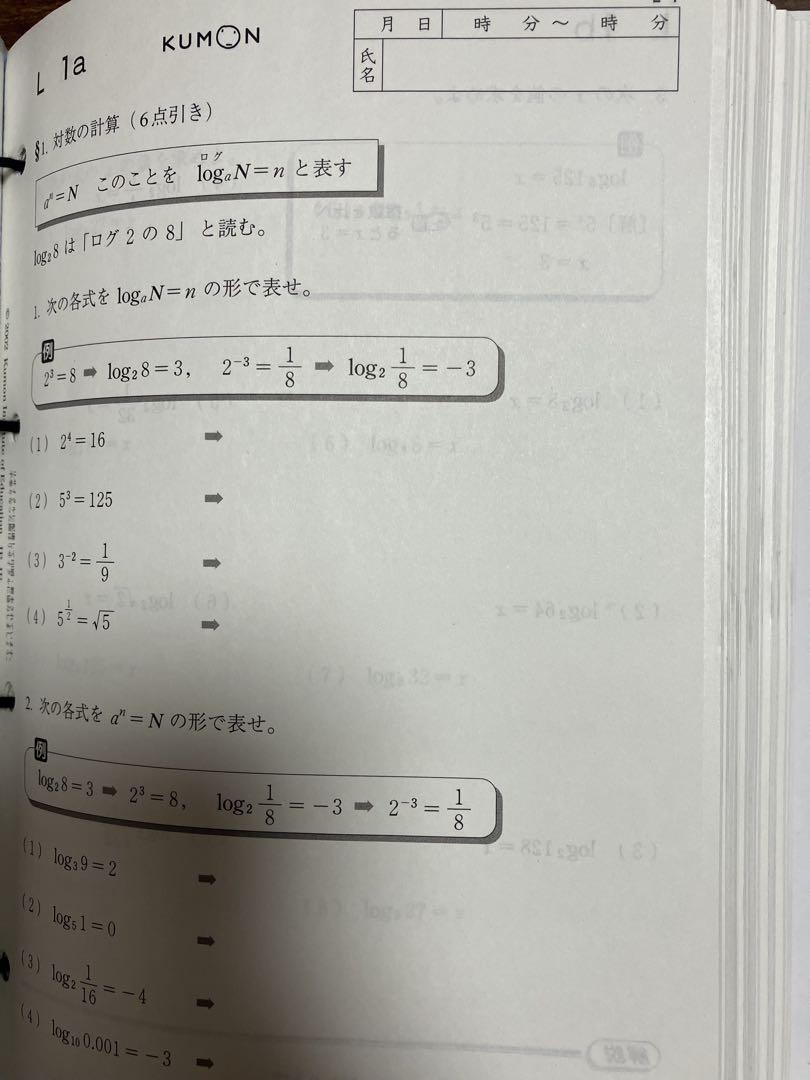 L 1a
KUMON
月 日 時 分 ～ 時 分
氏名
§1. 対数の計算（6点引き）
aⁿ=N このことを logₐN=n と表す
ログ
log₂8 は「ログ 2 の 8」 と読む。
1. 次の各式を logₐN=n の形で表せ。
例
2³=8 ➡ log₂8=3, 2⁻³=1/8 ➡ log₂1/8=−3
(1) 2⁴=16 ➡
(2) 5³=125 ➡
(3) 3⁻²=1/9 ➡
(4) 5^(1/2)=√5 ➡
2. 次の各式を aⁿ=N の形で表せ。
例
log₂8=3 ➡ 2³=8, log₂1/8=−3 ➡ 2⁻³=1/8
(1) log₃9=2 ➡
(2) log₅1=0 ➡
(3) log₂1/16=−4 ➡
(4) log₁₀0.001=−3 ➡